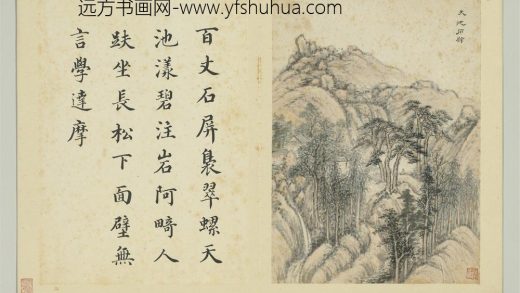 远方书画网-www.yfshuhua.com
百丈石屏裊翠螺天
池漾碧注岩阿畸人
趺坐長松下面壁無
言學達摩
天池石壁